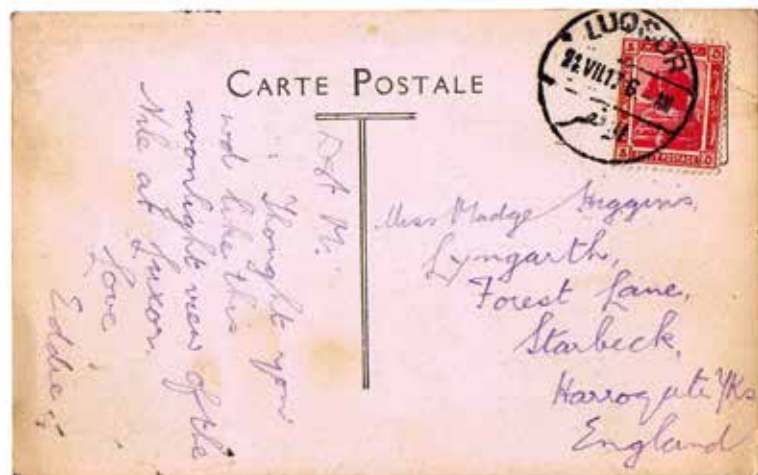 CARTE POSTALE
LUQSOR
Thought you
wd like this
moonlight view of the
Nile at Luxor.
Love
Eddie
Miss Madge Higgins,
Lyngarth,
Forest Lane,
Starbeck,
Harrogate Yks
England